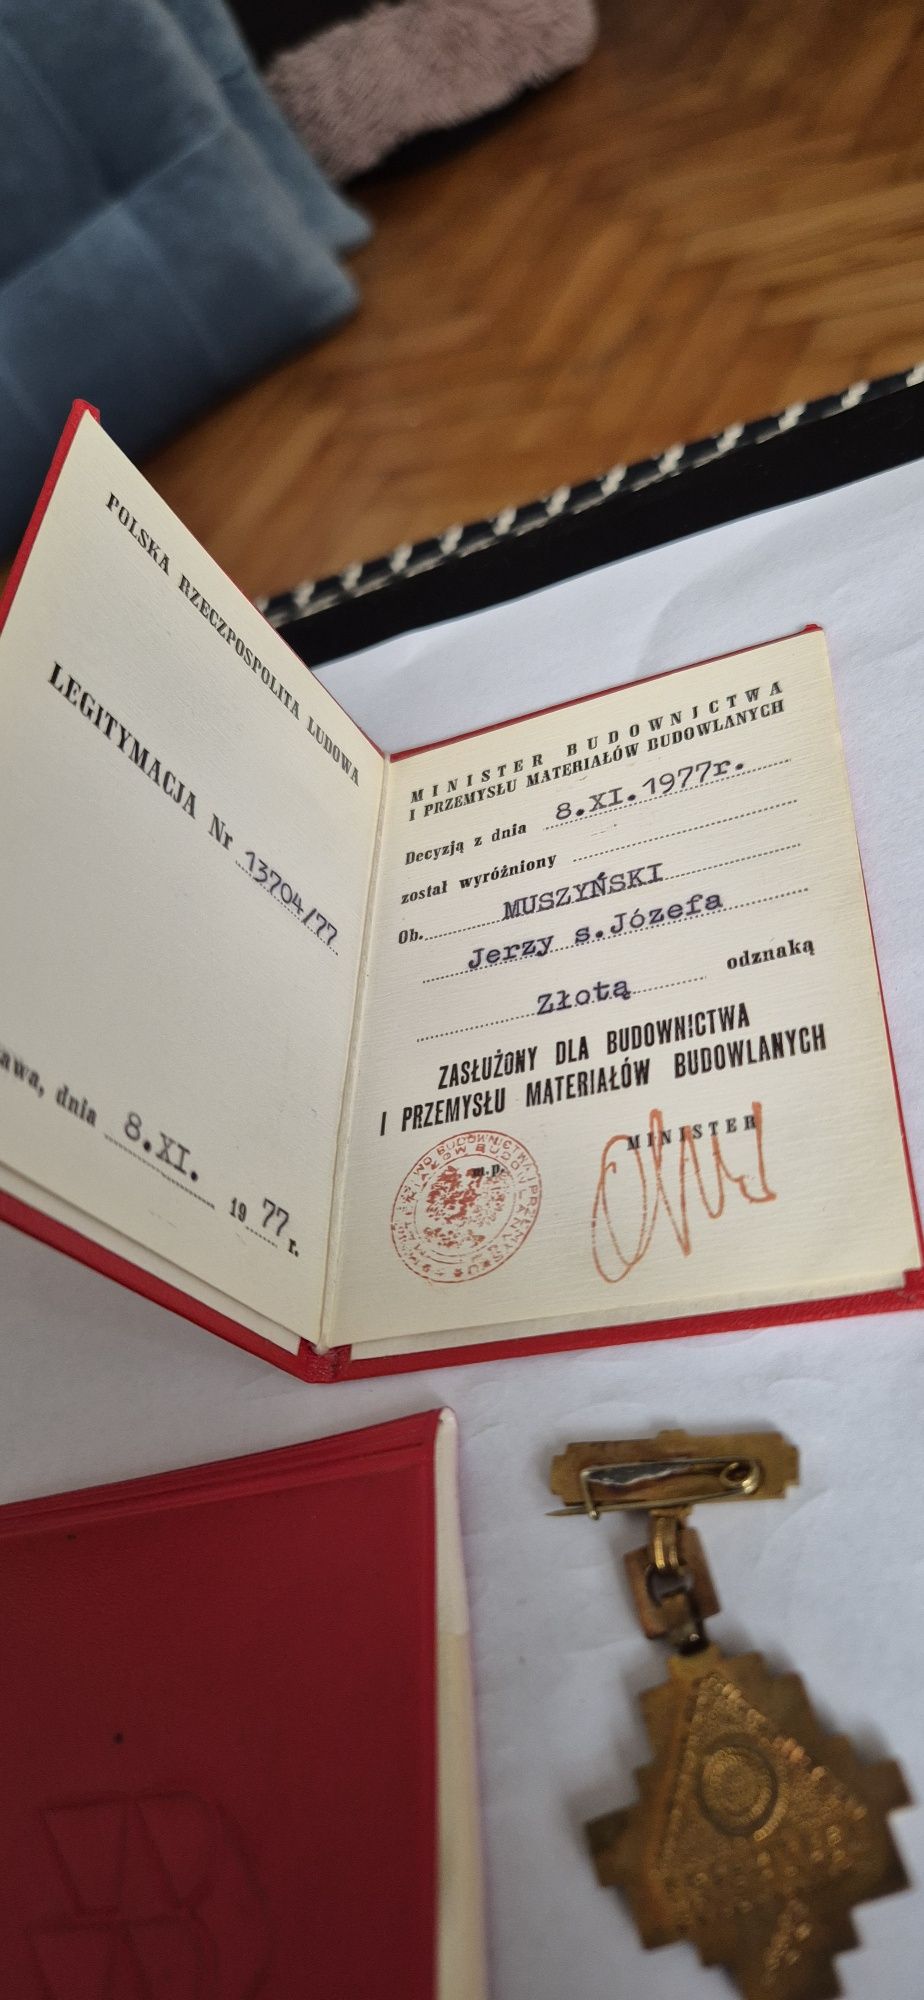 POLSKA RZECZPOSPOLITA LUDOWA
LEGITYMACJA Nr 13704/77
dnia 8.XI. 1977 r.
MINISTER BUDOWNICTWA
I PRZEMYSŁU MATERIAŁÓW BUDOWLANYCH
Decyzją z dnia 8.XI.1977r.
został wyróżniony
Ob. MUSZYŃSKI
Jerzy s.Józefa
Złotą odznaką
ZASŁUŻONY DLA BUDOWNICTWA
I PRZEMYSŁU MATERIAŁÓW BUDOWLANYCH
MINISTER
m.p.